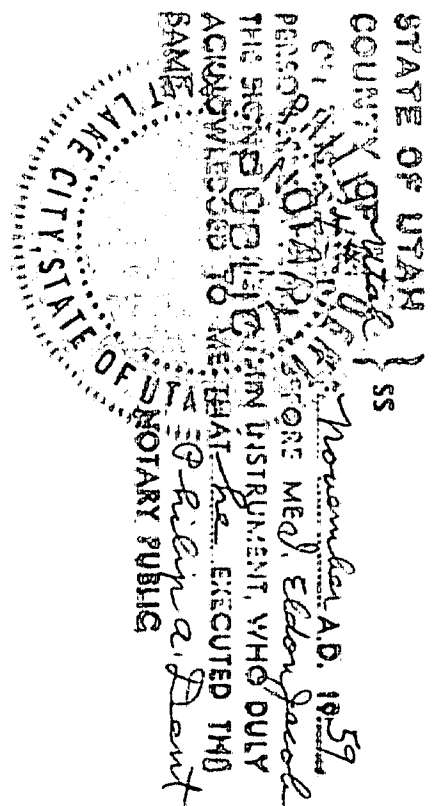 STATE OF UTAH
COUNTY OF Utah } SS
November A.D. 1959
PERSON BEFORE ME J. Eldon Jacob
THE SIGN IN INSTRUMENT, WHO DULY
ACKNOWLEDGED TO ME THAT he EXECUTED THE
SAME
Philip A. Dant
NOTARY PUBLIC
NOTARY PUBLIC
LAKE CITY, STATE OF UTAH